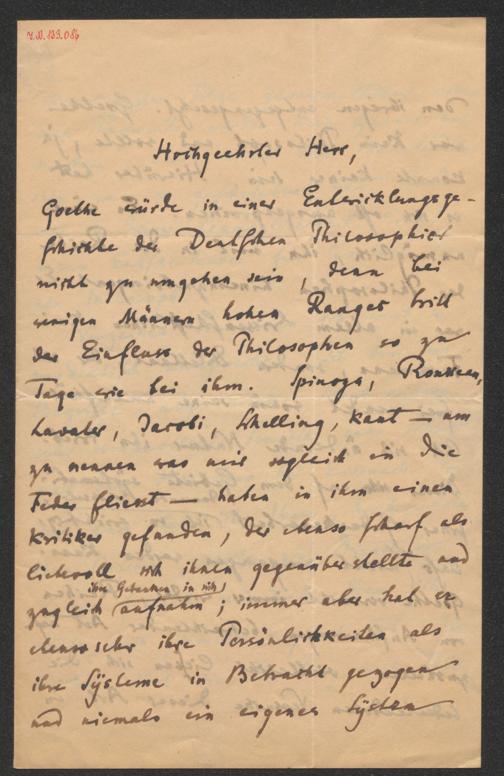 I.N. 133.086
Hochgeehrter Herr,
Goethe würde in einer Entwicklungsge-
schichte der Deutschen Philosophie
nicht zu umgehen sein, denn bei
wenigen Männern hohen Ranges tritt
der Einfluss der Philosophen so zu
Tage wie bei ihm. Spinoza, Rousseau,
Lavater, Jacobi, Schelling, Kant — um
zu nennen was mir sogleich in die
Feder fliesst — haben in ihm einen
Kritiker gefunden, der ebenso scharf als
liebevoll sich ihnen gegenüber stellte und
ihre Gedanken in sich
zugleich aufnahm; immer aber hat er
ebenso sehr ihre Persönlichkeiten als
ihre Systeme in Betracht gezogen
und niemals ein eigenes System